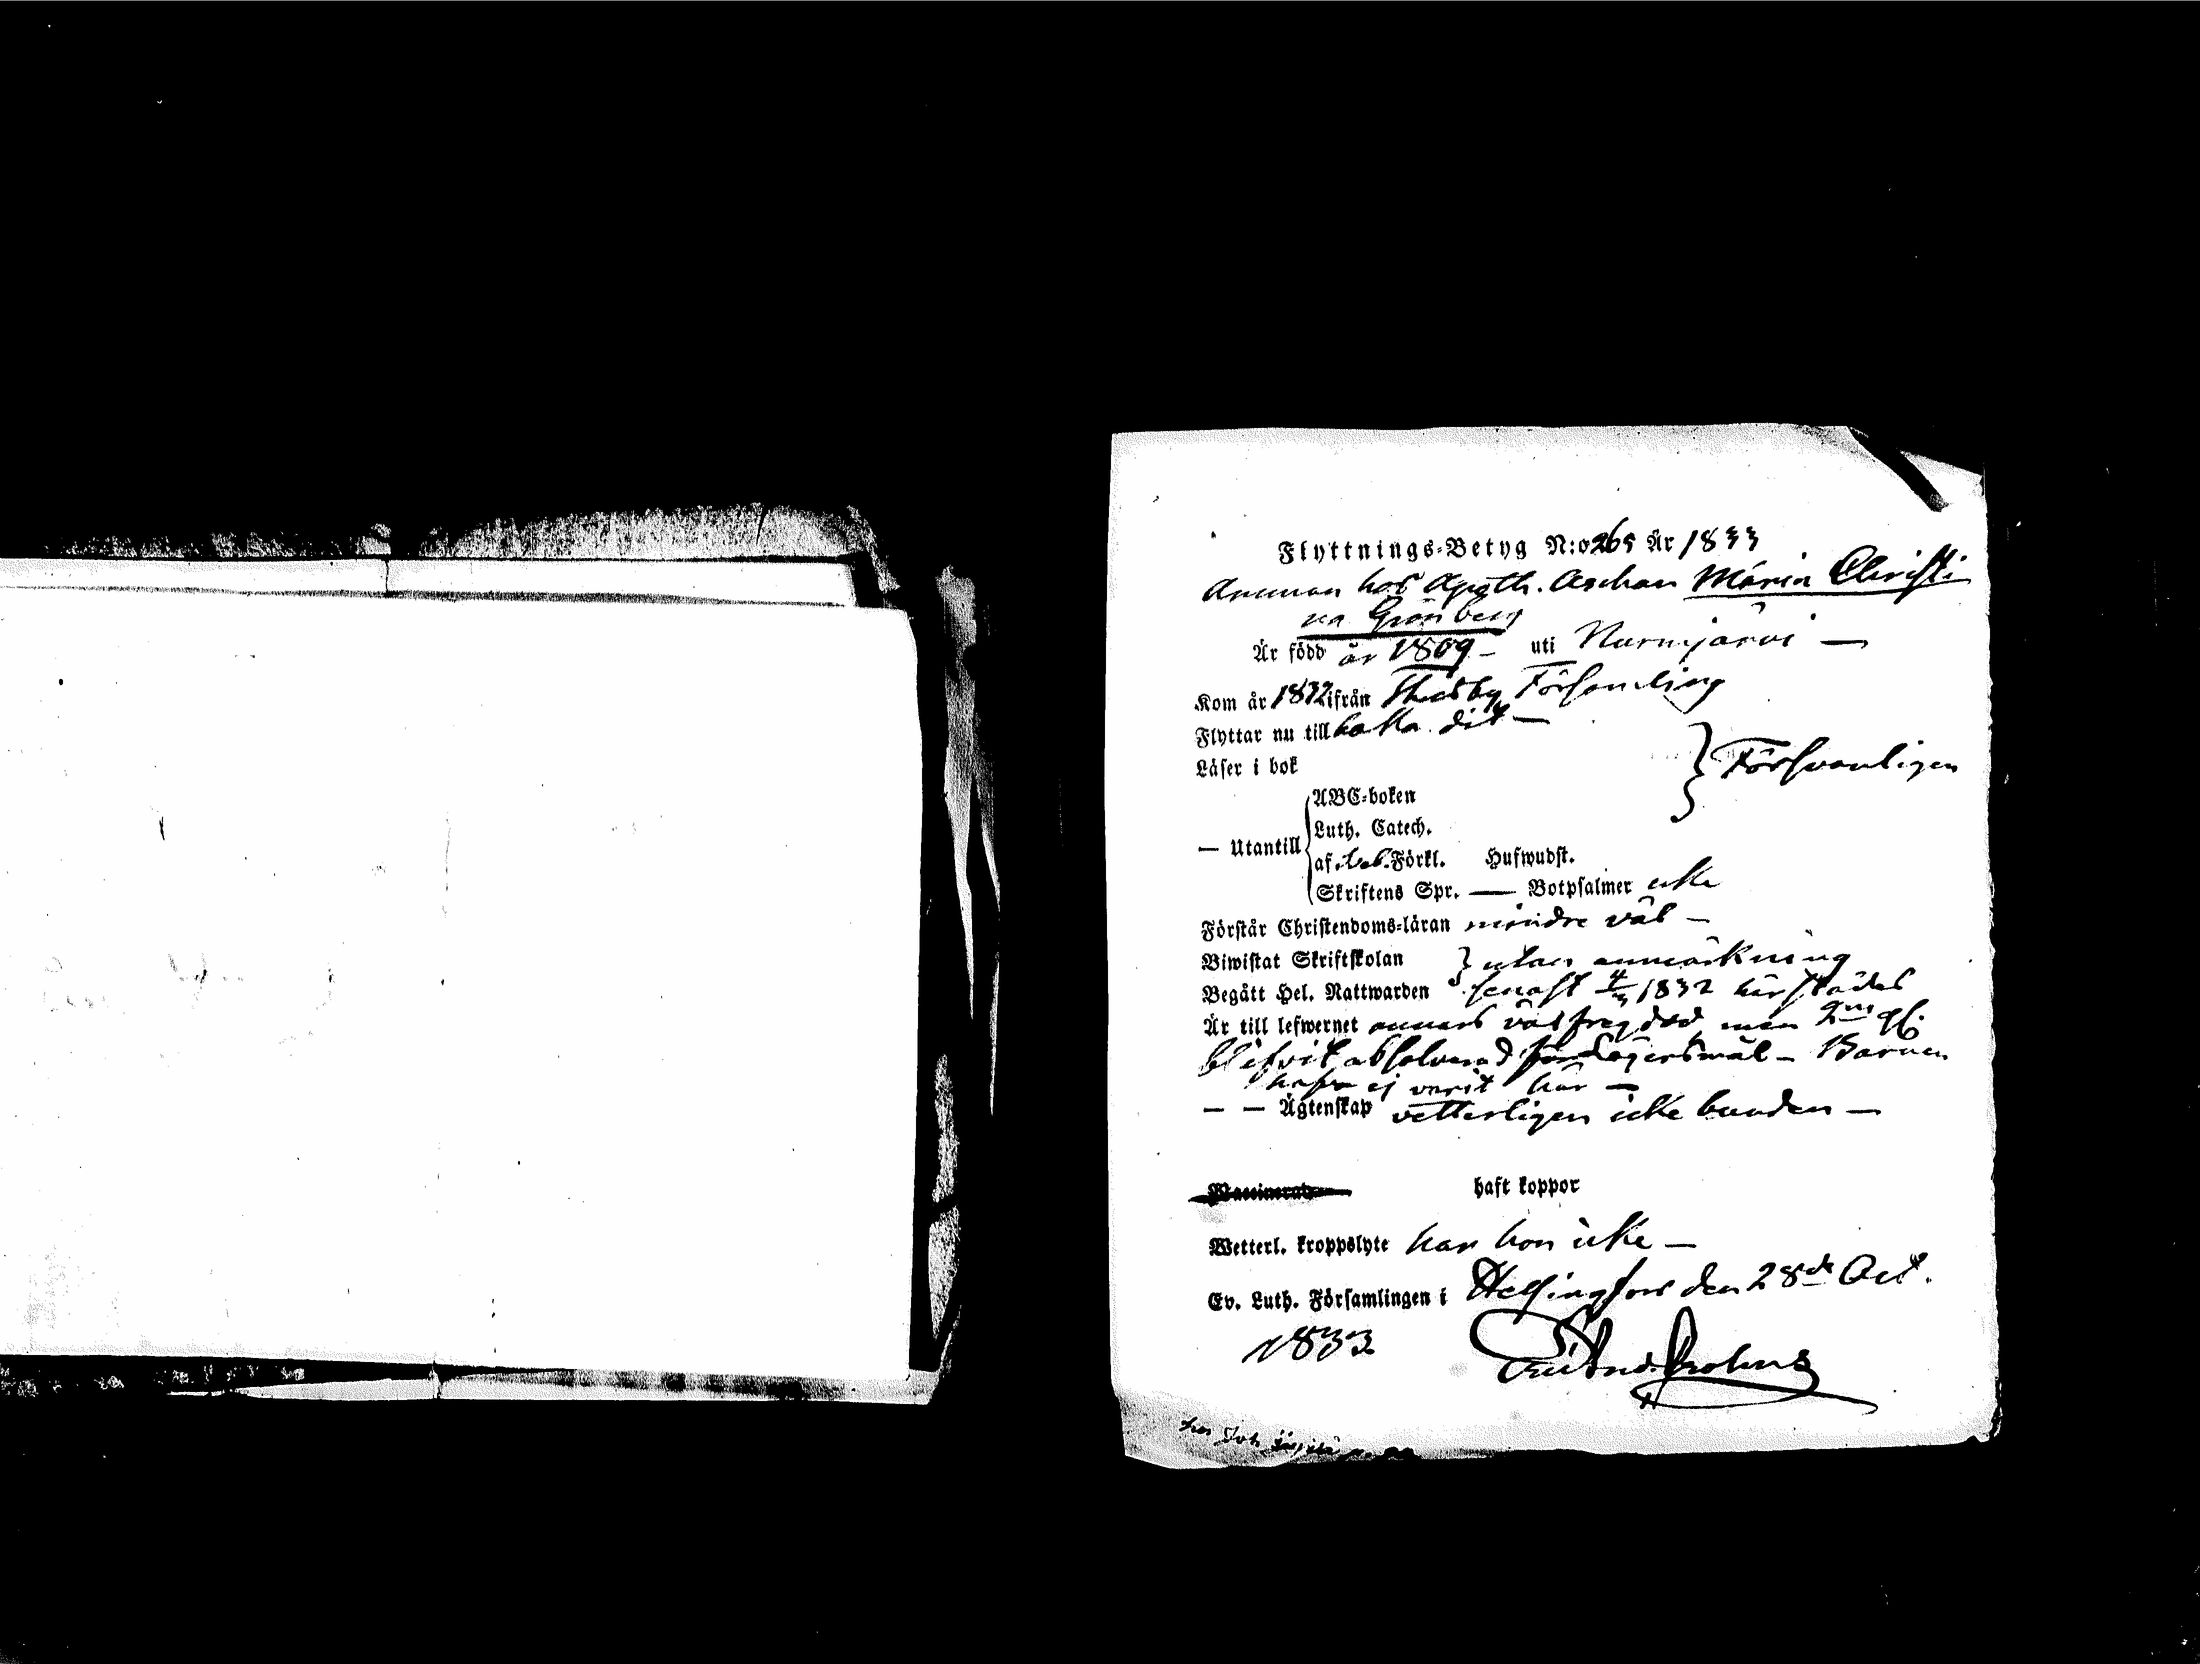 Flyttnings-Betyg N:o 265 År 1833
Amman hos Apoth. Aschan Maria Christi
na Grönberg
Är född år 1809 – uti Nurmijärvi —
Kom år 1832 ifrån Thusby Församling
Flyttar nu till baka dit —
Läser i bok } Försvarligen
ABC-boken
Luth. Catech.
— Utantill
af Förkl. Hufwudst.
Skriftens Spr. — Botpsalmer icke
Förstår Christendoms-läran mindre väl —
Biwistat Skriftskolan } utan anmärkning
Begått Hel. Nattwarden senast 4/3 1832 härstädes
Är till lefwernet annars välfregdad, men 2
blifvit absolverad för Lägersmål – Barnen
hafva ej varit här —
— — Ägtenskap vetterligen icke bunden —
haft koppor
Wetterl. kroppslyte har hon icke —
Ev. Luth. Församlingen i Helsingfors den 28de Oct.
1833